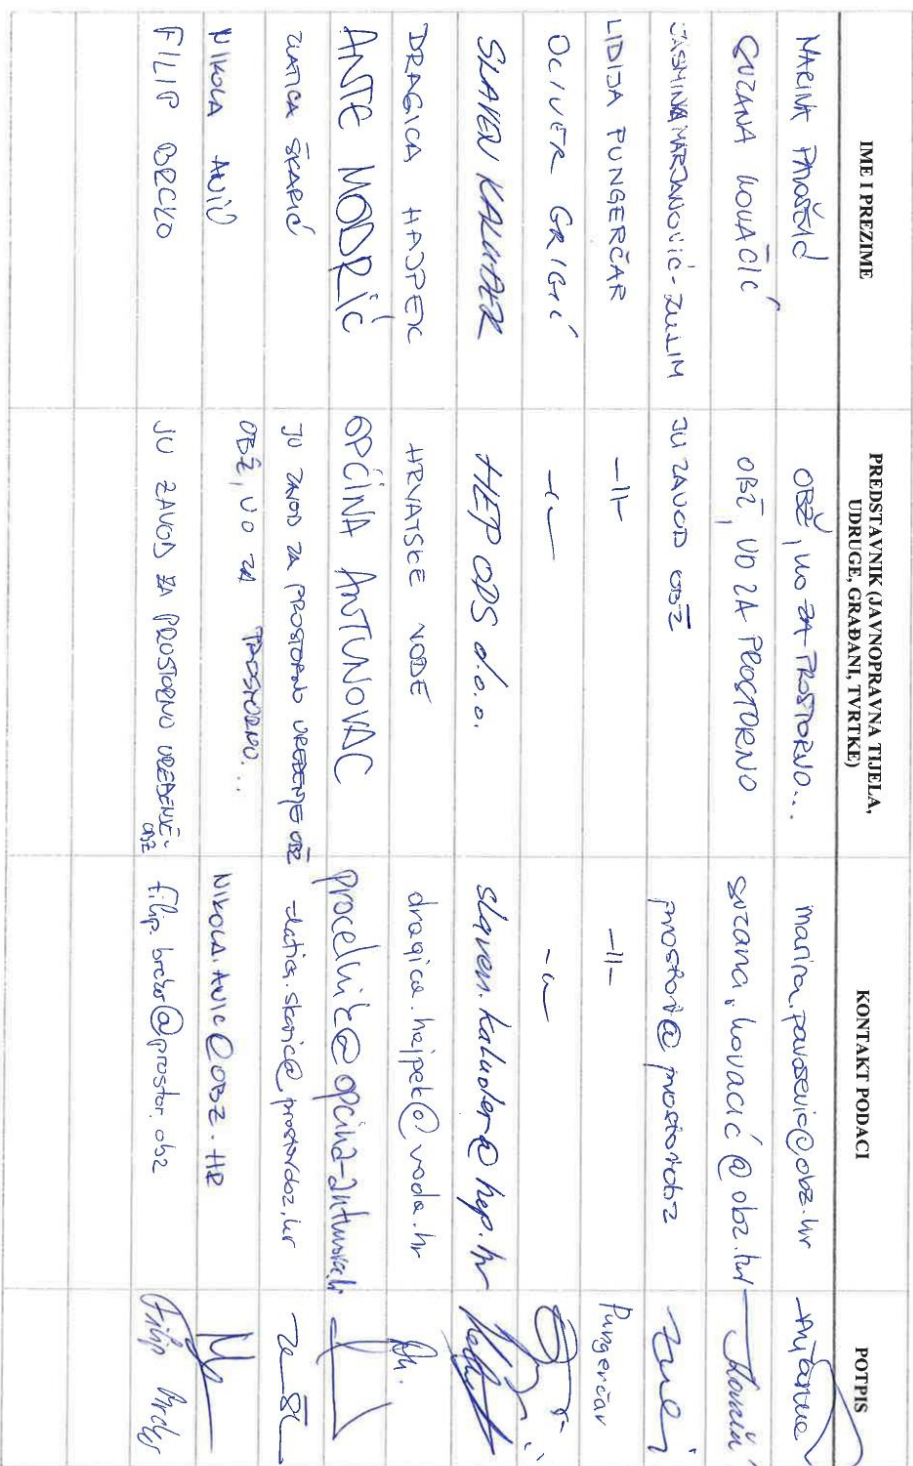 IME I PREZIME PREDSTAVNIK (JAVNOPRAVNA TIJELA, UDRUGE, GRAĐANI, TVRTKE) KONTAKT PODACI POTPIS
MARINA PAVOŠEVIĆ OBŽ, UO ZA PROSTORNO... marina.pavosevic@obz.hr
SUZANA KOVAČIĆ OBŽ, UO ZA PROSTORNO suzana.kovacić@obz.hr Kovačić
JASMINA MARJANOVIĆ- JU ZAVOD OBŽ prostor@prostorobz
LIDIJA PUNGERČAR -||- -||- Pungerčar
OLIVER GRIGIĆ -||- -||-
SLAVEN KALUĐER HEP ODS d.o.o. slaven.kaluder@hep.hr
DRAGICA HAJPEK HRVATSKE VODE dragica.hajpek@voda.hr
ANTE MODRIĆ OPĆINA ANTUNOVAC procelnik@opcina-antunovac.hr
ZLATICA ŠKARIĆ JU ZAVOD ZA PROSTORNO UREĐENJE OBŽ zlatica.skaric@prostorobz.hr
NIKOLA ANIĆ OBŽ, UO ZA PROSTORNO... NIKOLA.ANIC@OBZ.HR
FILIP BRCKO JU ZAVOD ZA PROSTORNO UREĐENJE OBŽ filip.brcko@prostor.obz Filip Brcko